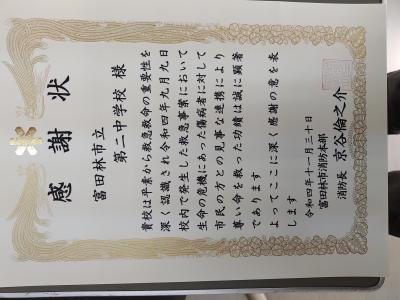 感謝状
富田林市立
第二中学校 様
貴校は平素から救急救命の重要性を
深く認識され令和四年九月九日
校内で発生した救急事案において
生命の危機にあった傷病者に対して
市民の方との見事な連携により
尊い命を救った功績は誠に顕著
であります
よってここに深く感謝の意を表
します
令和四年十一月三十日
富田林市消防本部
消防長 京谷倫之介